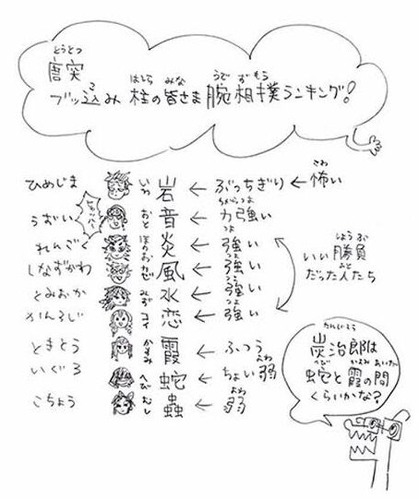 とうとつ
唐突
はしら みな うで ずもう
ブッ込み 柱の皆さま 腕相撲ランキング!
さわ
ひめじま いわ 岩 ← ぶっちぎり ← 怖い
うずい おと 音 ← 力強い
れんごく ほのお 炎 ← 強い
しなずがわ かぜ 風 ← 強い
とみおか みず 水 ← 強い
かんろじ コイ 恋 ← 強い
いい勝負
だった人たち
ときとう かすみ 霞 ← ふつう
いぐろ へび 蛇 ← ちょい弱
こちょう むし 蟲 ← 弱
たんじろう
炭治郎は
へび かすみ あいだ
蛇と霞の間
くらいかな?